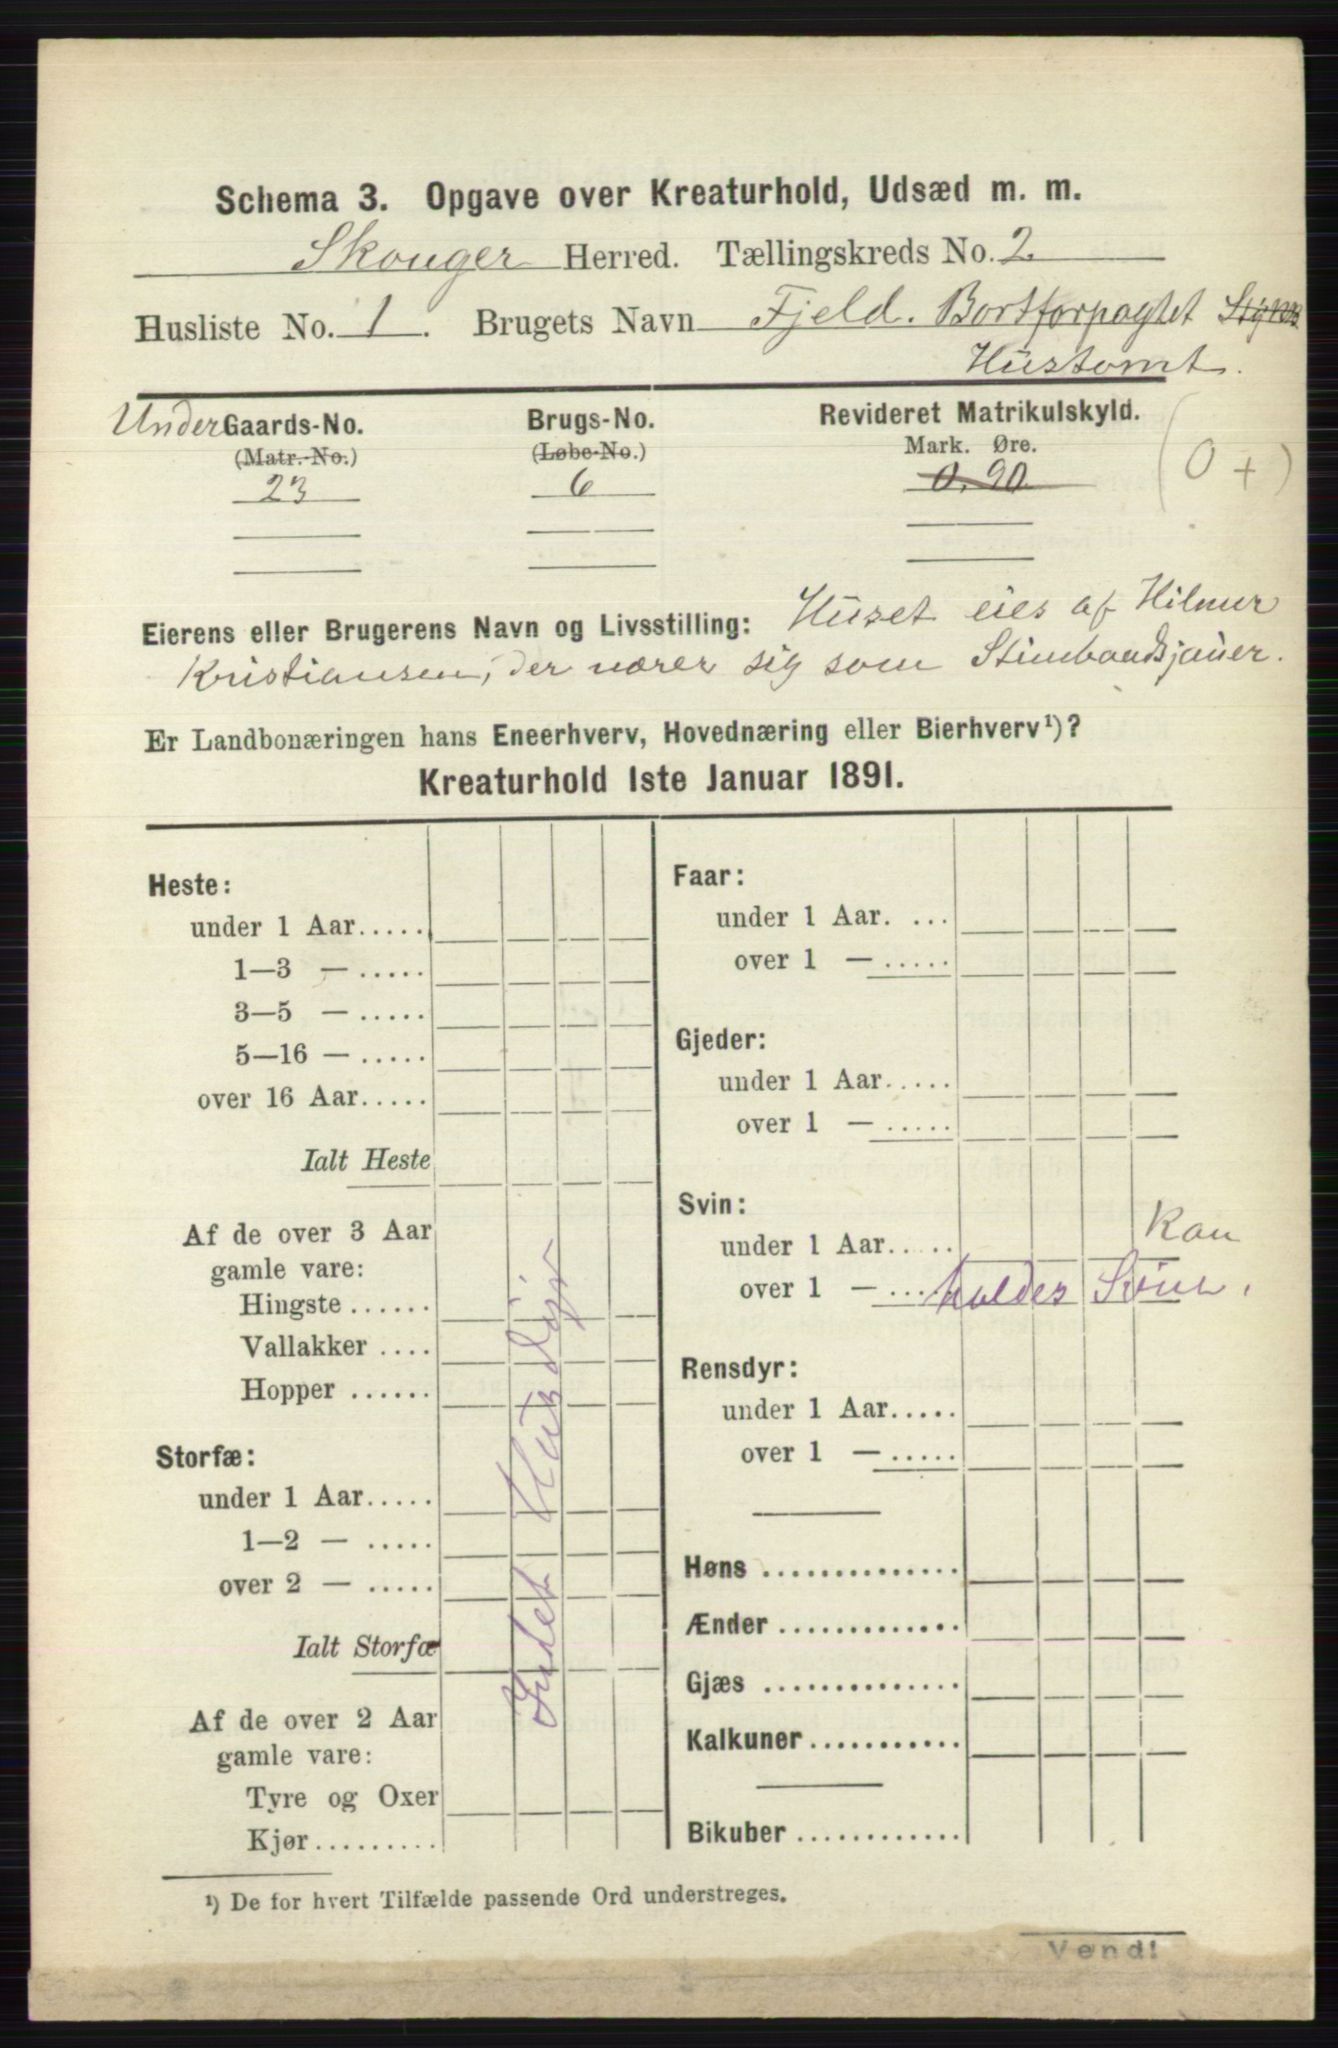 Schema 3. Opgave over Kreaturhold, Udsæd m. m.
Skouger Herred. Tællingskreds No. 2.
Husliste No. 1. Brugets Navn Fjeld. Bortforpagtet
Hustomt.
Under Gaards-No. Brugs-No. Revideret Matrikulskyld.
(Matr.-No.) (Løbe-No.) Mark. Øre.
23 6 0.90 (0 +)
Eierens eller Brugerens Navn og Livsstilling: Huset eies af Hilmer
Kristiansen, der nærer sig som
Er Landbonæringen hans Eneerhverv, Hovednæring eller Bierhverv¹)?
Kreaturhold 1ste Januar 1891.
Heste:
under 1 Aar.....
1—3 — .....
3—5 — .....
5—16 — .....
over 16 Aar.....
Ialt Heste
Af de over 3 Aar
gamle vare:
Hingste ......
Vallakker ....
Hopper ......
Storfæ:
under 1 Aar.....
1—2 — .....
over 2 — .....
Ialt Storfæ
Af de over 2 Aar
gamle vare:
Tyre og Oxer
Kjør.........
Intet Husdyr
Faar:
under 1 Aar. ...
over 1 — .....
Gjeder:
under 1 Aar.....
over 1 — .....
Svin:
under 1 Aar..... Kan
over 1 — ... holdes Sviin.
Rensdyr:
under 1 Aar.....
over 1 — .....
Høns ..............
Ænder .............
Gjæs ..............
Kalkuner ...........
Bikuber ............
¹) De for hvert Tilfælde passende Ord understreges.
Vend!